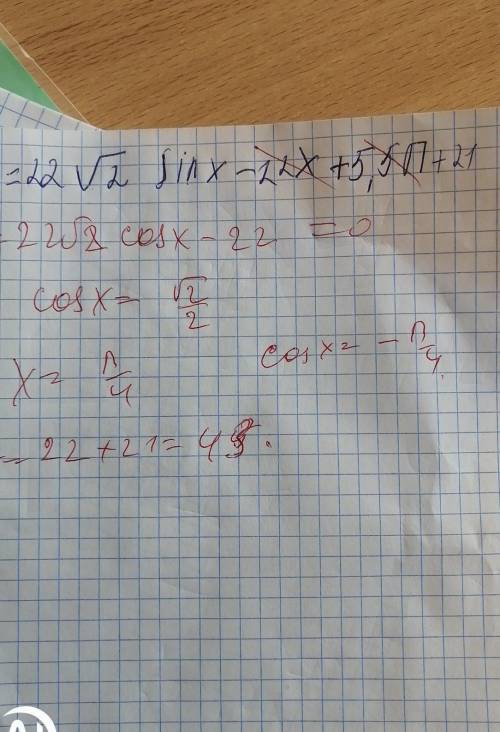 =22√2 sinx-22x+5,5П+21
22√2 cosx-22=0
cosx=√2/2
x=П/4 cosx=-П/4.
=22+21=43.